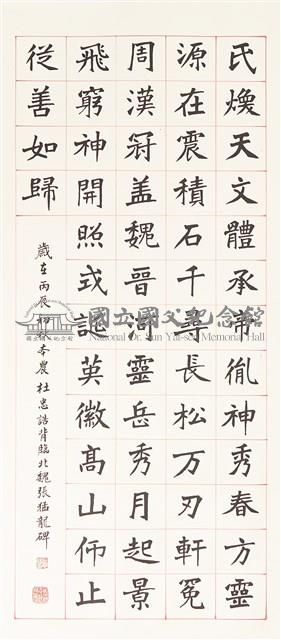 氏煥天文體承帝胤神秀春方靈
源在震積石千尋長松万刃軒冕
周漢冠盖魏晉河靈岳秀月起景
飛窮神開照式誕英徽高山仰止
從善如歸
歲在丙辰農杜忠誥背臨北魏張猛龍碑
國立國父紀念館
National Dr. Sun Yat-sen Memorial Hall